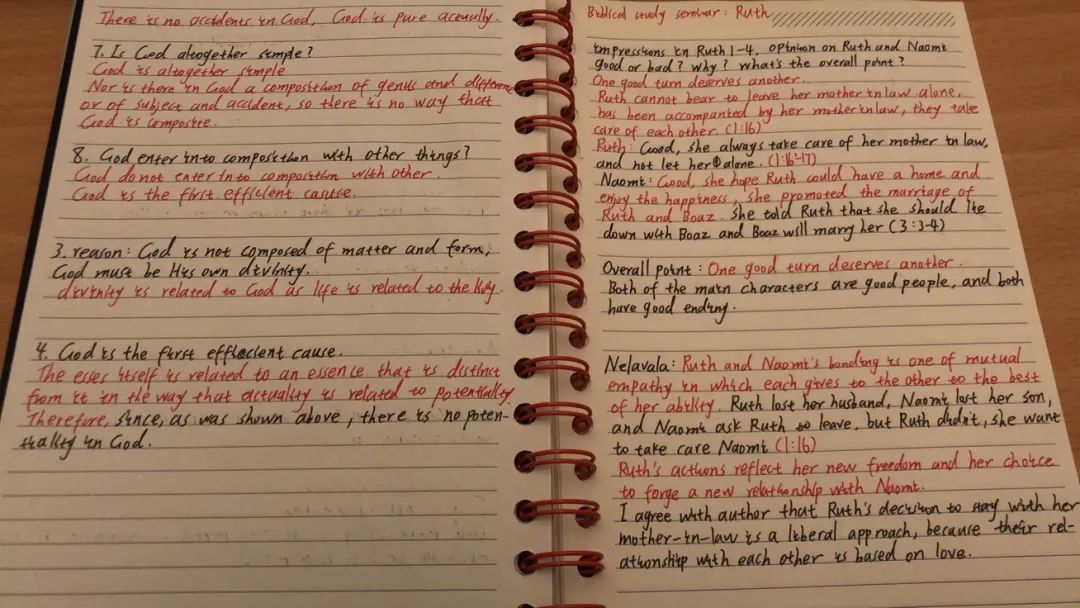 There is no accidents in God, God is pure actually.
7. Is God altogether simple?
God is altogether simple
Nor is there in God a composition of genus and difference
or of subject and accident, so there is no way that
God is composite.
8. God enter into composition with other things?
God do not enter into composition with other.
God is the first efficient causse.
3. reason: God is not composed of matter and form,
God must be His own divinity.
divinity is related to God as life is related to the
4. God is the first effiecient cause.
The esses itself is related to an essence that is distinct
from it in the way that actuality is related to potentiality.
Therefore, since, as was shown above, there is no poten-
tiality in God.
Biblical study seminar: Ruth
impressions in Ruth 1-4, opinion on Ruth and Naomi
good or bad? why? what's the overall point?
One good turn deserves another.
Ruth cannot bear to leave her mother in law alone,
has been accompanied by her mother in law, they take
care of each other. (1:16)
Ruth: Good, she always take care of her mother in law,
and not let her alone. (1:16-17)
Naomi: Good, she hope Ruth could have a home and
enjoy the happiness, she promoted the marriage of
Ruth and Boaz. She told Ruth that she should lie
down with Boaz and Boaz will marry her (3:3-4)
Overall point: One good turn deserves another.
Both of the main characters are good people, and both
have good ending.
Nelavala: Ruth and Naomi's bonding is one of mutual
empathy in which each gives to the other to the best
of her ability. Ruth lost her husband, Naomi lost her son,
and Naomi ask Ruth to leave, but Ruth didn't, she want
to take care Naomi (1:16)
Ruth's actions reflect her new freedom and her choice
to forge a new relationship with Naomi.
I agree with author that Ruth's decision to stay with her
mother-in-law is a liberal approach, because their rel-
ationship with each other is based on love.